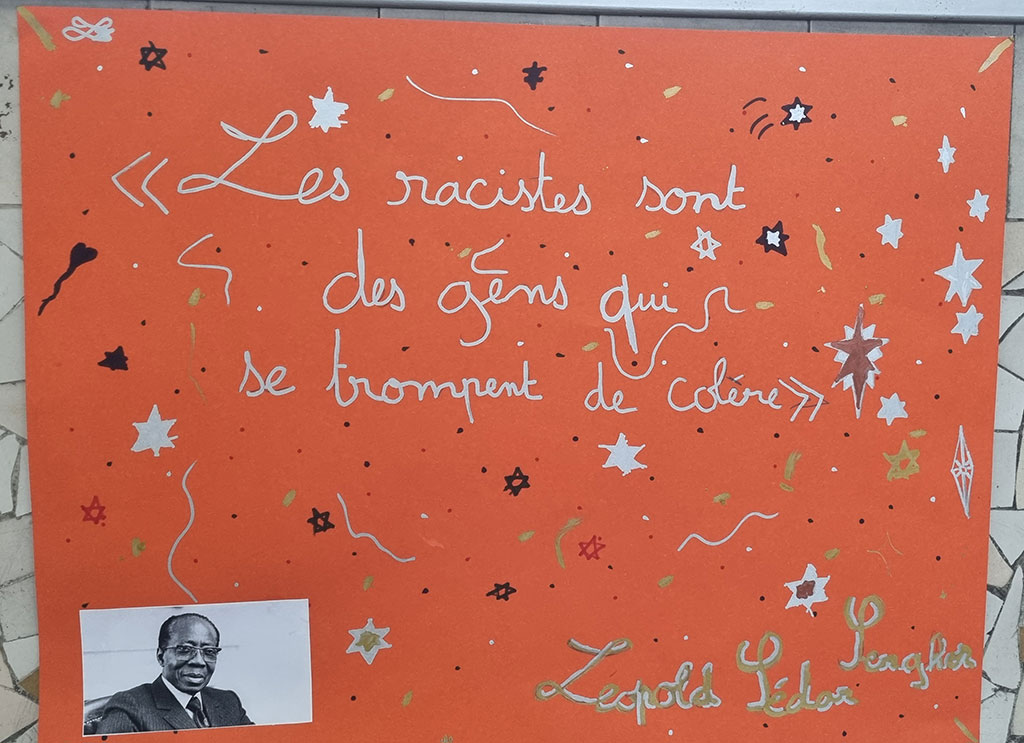 « Les racistes sont
des gens qui
se trompent de colère »
Léopold Sédar Senghor